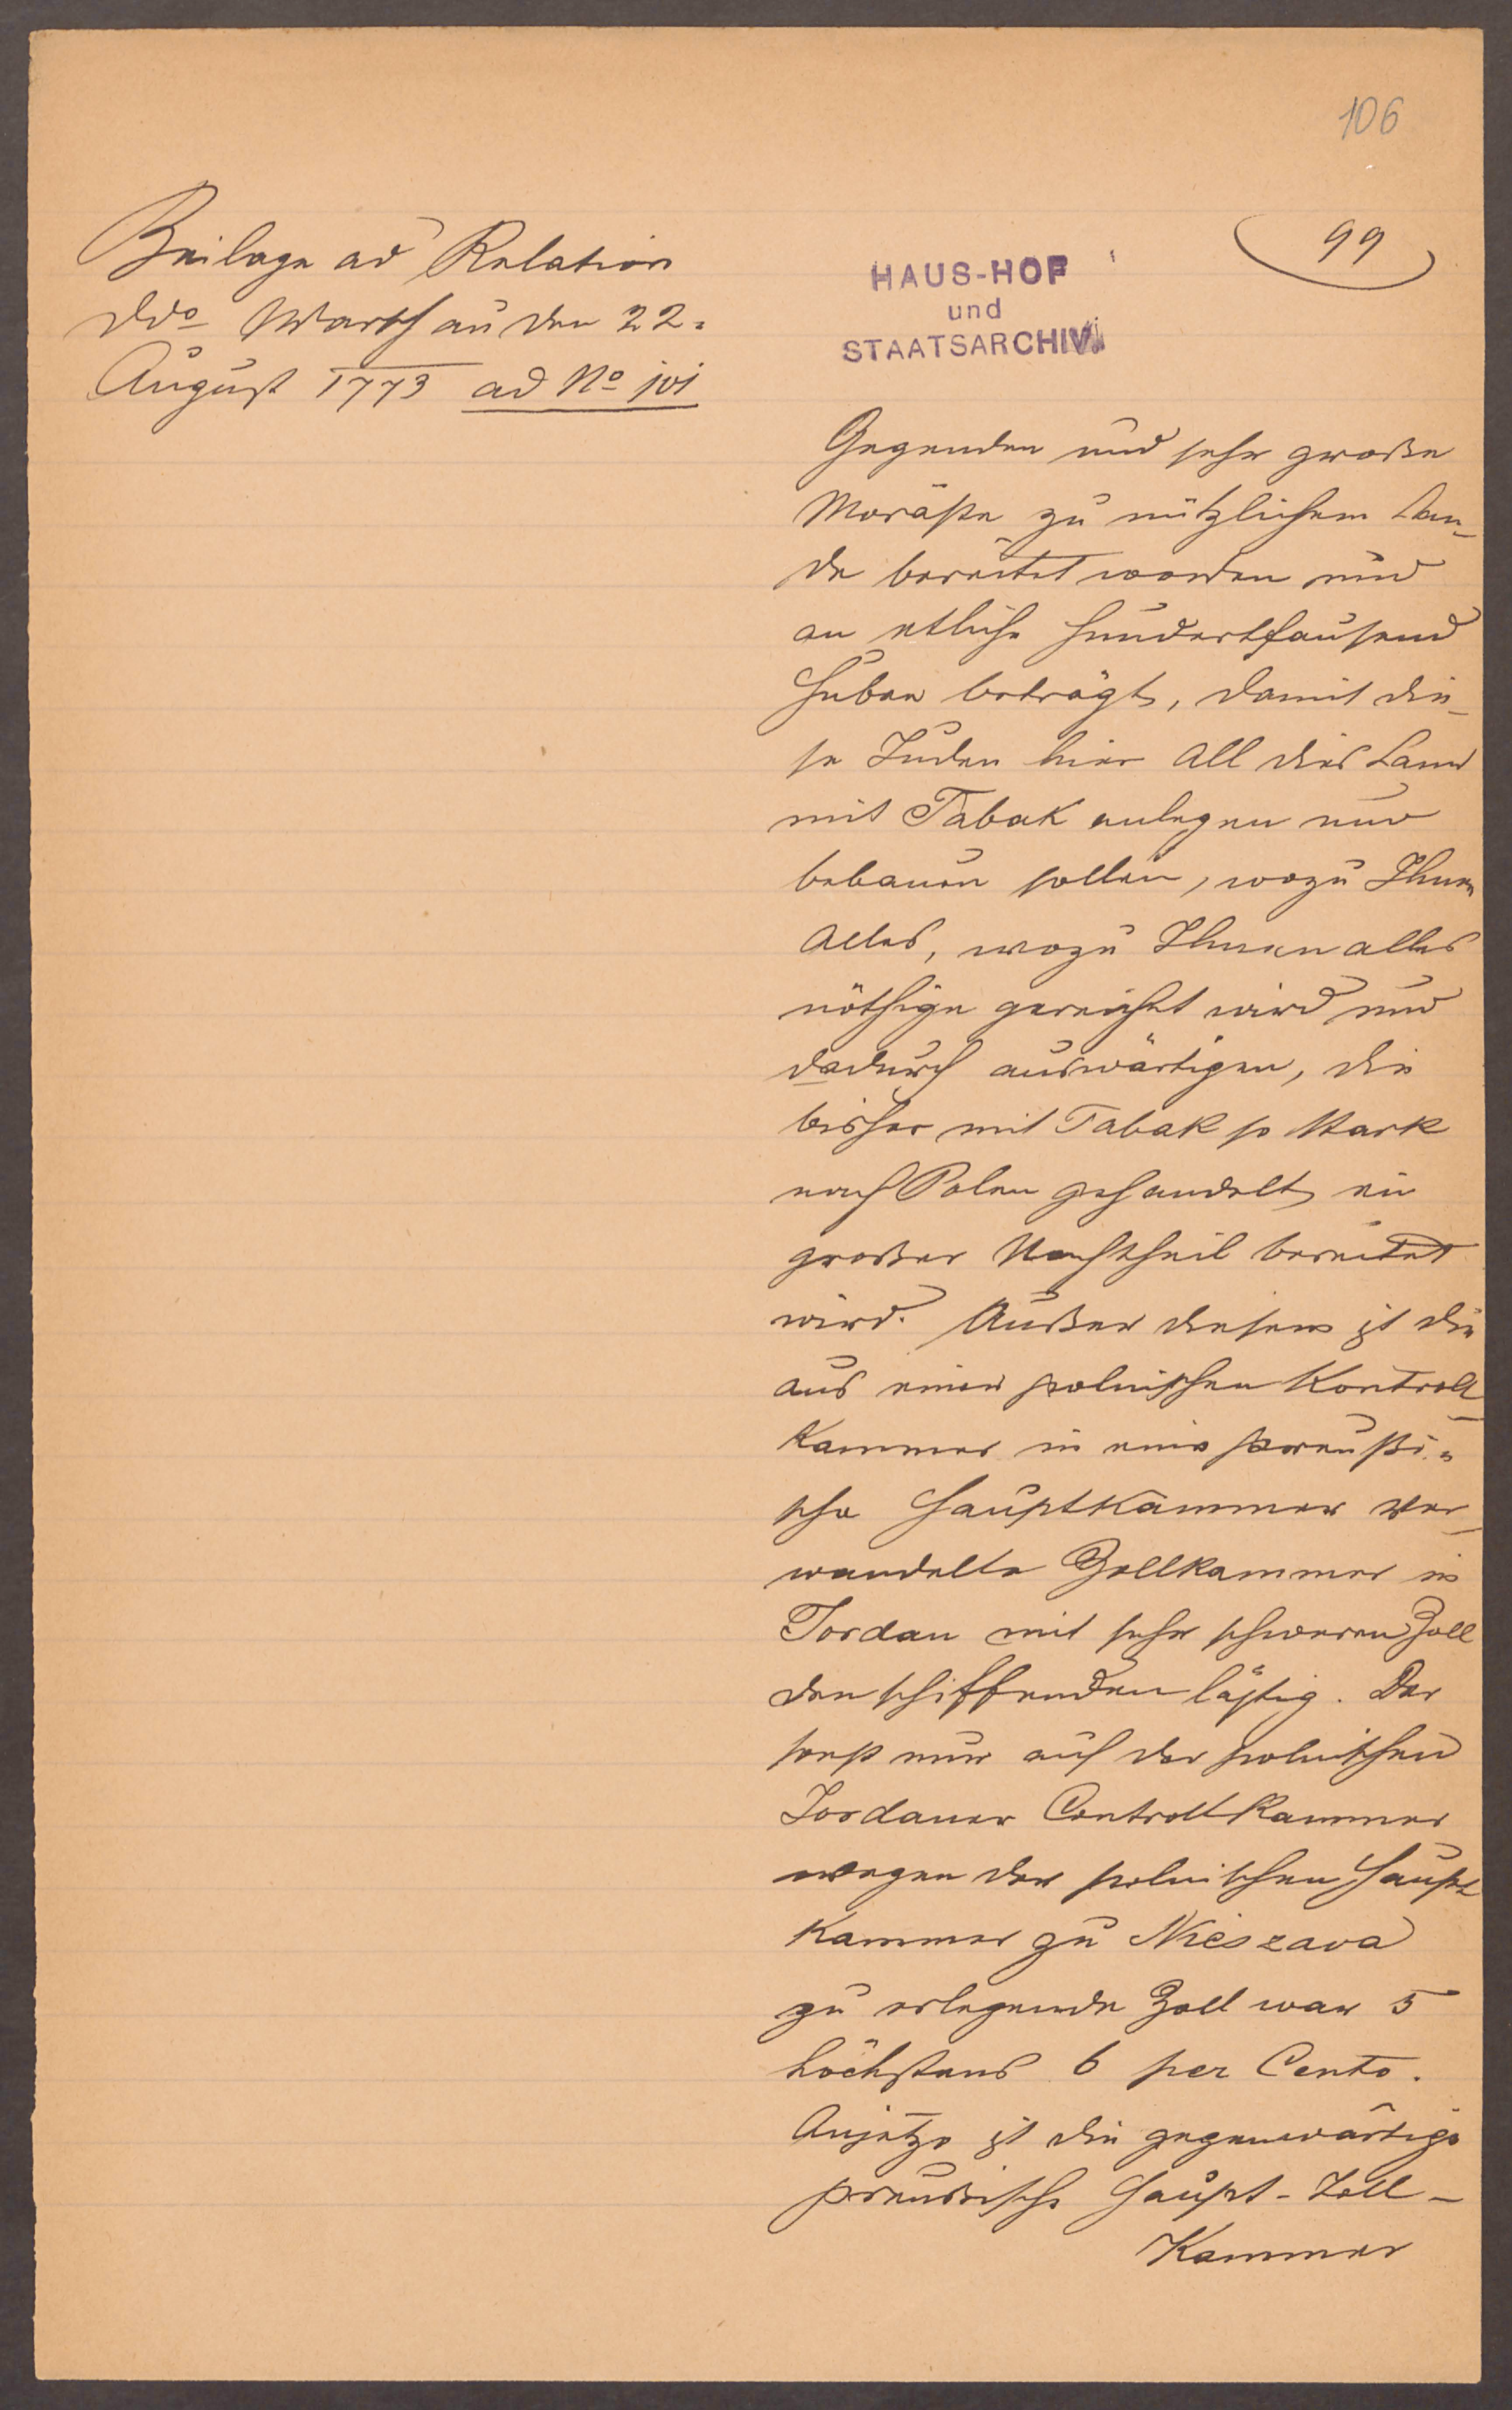 106
99
Beilage ad Relation
ddo Warschau den 22.
August 1773 ad No 101
HAUS-HOF
und
STAATSARCHIV
Gegenden und sehr große
Moräste zu nützlichem Lan-
de bereitet worden und
an etliche hunderttausend
Huben beträgt, damit die-
se Juden hier all dies Land
mit Tabak anlegen und
bebauen sollen, wozu Ihnen
Alles, wozu Ihnen alles
nöthige gereichet wird und
dadurch auswärtigen, die
bisher mit Tabak so stark
nach Polen gehandelt, ein
großer Nachtheil bereitet
wird. Außer diesem ist die
aus einer polnischen Kontroll
Kammer in eine preußi-
sche Hauptkammer ver-
wandelte Zollkammer in
Fordan mit sehr schweren Zoll
den schiffenden lästig. Der
sonst nur auf der polnischen
Fordaner Controllkammer
wegen der polnischen Haupt
Kammer zu Nieszava
zu erlegende Zoll war 5
höchstens 6 per Cento.
Anjetzo ist die gegenwärtige
preussische Haupt-Zoll-
Kammer